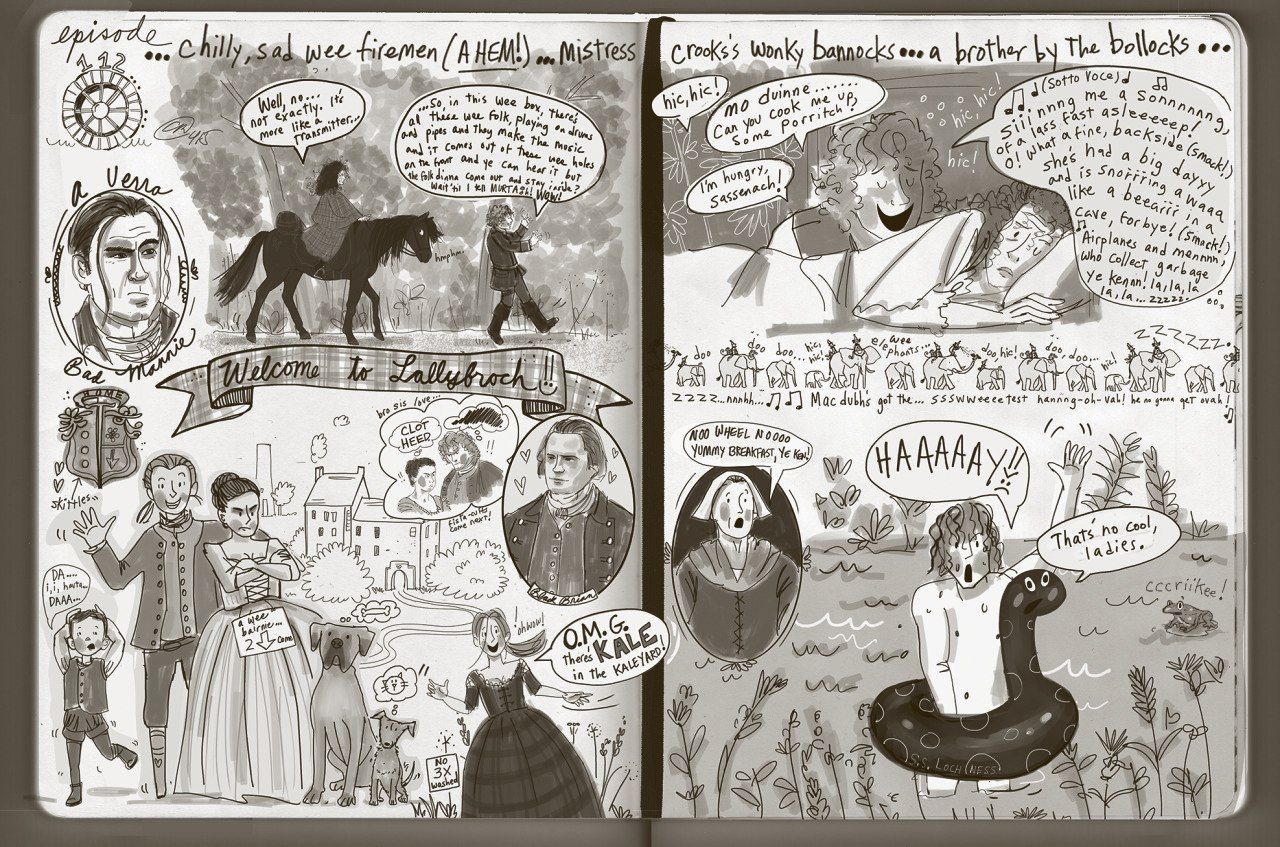 episode
112
... chilly, sad wee firemen (AHEM!) ... Mistress
crooks's wonky bannocks... a brother by the bollocks...
Well, no...
not exactly. It's
more like a
transmitter...
...So, in this wee box, there's
all these wee folk, playing on drums
and pipes and they make the music
and it comes out of these wee holes
on the front and ye can hear it but
the folk dinna come out and stay inside?
Wait 'til I tell MURTAGH! WOW!
hmphm.
a Verra
Bad Mannie
Welcome to Lallybroch!!
HOME
skittles
bro sis love...
CLOT
HEED
fista-cuffs
come next!
Black Brian
DA....
DAAA...
a wee
bairnie...
2 Come
NO
3X
washed
ohwow!
O.M.G.
theres KALE
in the KALEYARD!
hic, hic!
mo duinne.......
Can you cook me up,
some Porritch?
I'm hungry,
Sassenach!
hic!
hic,
hic!
(Sotto Voce)
Siiinnng me a sonnnnng,
of a lass fast asleeeeep!
O! What a fine, backside (smack!)
she's had a big dayyy
and is snorrring awaaa
like a beearrr in a
cave, forbye! (Smack!)
Airplanes and mennnn,
who collect garbage
ye kenn! la, la, la
la, la... zzzzz.
doo doo doo... hic, hic! wee elephants... doo, hic! doo, doo... hic! zzzzzzz.
zzzz...nnnhh... Mac dubh's got the... sssWweeeetest hannng-oh-vah! he no gonna get ovah!
NOO WHEEL NOOOO
YUMMY BREAKFAST, YE KEN!
HAAAAAY!!
That's no cool,
ladies.
cccriikee!
S.S. LOCH NESS